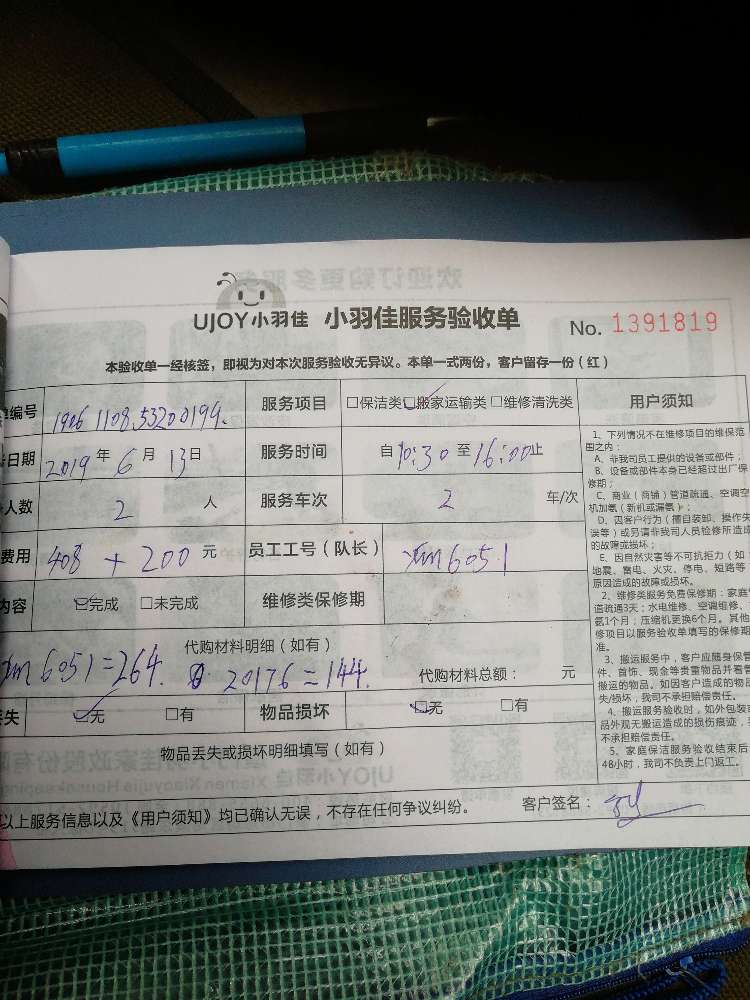 UJOY小羽佳 小羽佳服务验收单 No. 1391819
本验收单一经核签，即视为对本次服务验收无异议。本单一式两份，客户留存一份(红)
编号 1906110853200199. 服务项目 □保洁类☑搬家运输类□维修清洗类 用户须知
日期 2019年6月13日 服务时间 自10:30至16:00止
人数 2 人 服务车次 2 车/次
费用 408+200 元 员工工号（队长） xm6051
内容 ☑完成 □未完成 维修类保修期
代购材料明细（如有）
xm6051=264. 20176=144. 代购材料总额： 元
失 ☑无 □有 物品损坏 ☑无 □有
物品丢失或损坏明细填写（如有）
以上服务信息以及《用户须知》均已确认无误，不存在任何争议纠纷。 客户签名：
1、下列情况不在维修项目的维保范
围之内：
A、非我司员工提供的设备或部件；
B、设备或部件本身已经超过出厂保
修期；
C、商业（商铺）管道疏通、空调空
机加氨（新机或漏氨）；
D、因客户行为（擅自装卸、操作失
误等）或另请非我司人员检修所造成
的故障或损坏；
E、因自然灾害等不可抗拒力（如
地震、雷电、火灾、停电、短路等
原因造成的故障或损坏。
2、维修类服务免费保修期：家庭
道疏通3天；水电维修、空调维修、
氨1个月；压缩机更换6个月。其他
修项目以服务验收单填写的保修期
准。
3、搬运服务中，客户应随身保管
件、首饰、现金等贵重物品并看管
搬运的物品。如因客户造成的物品
失/损坏，我司不承担赔偿责任。
4、搬运服务验收时，如外包装
品外观无搬运造成的损伤痕迹，
不承担赔偿责任。
5、家庭保洁服务验收结束后
48小时，我司不负责上门返工。